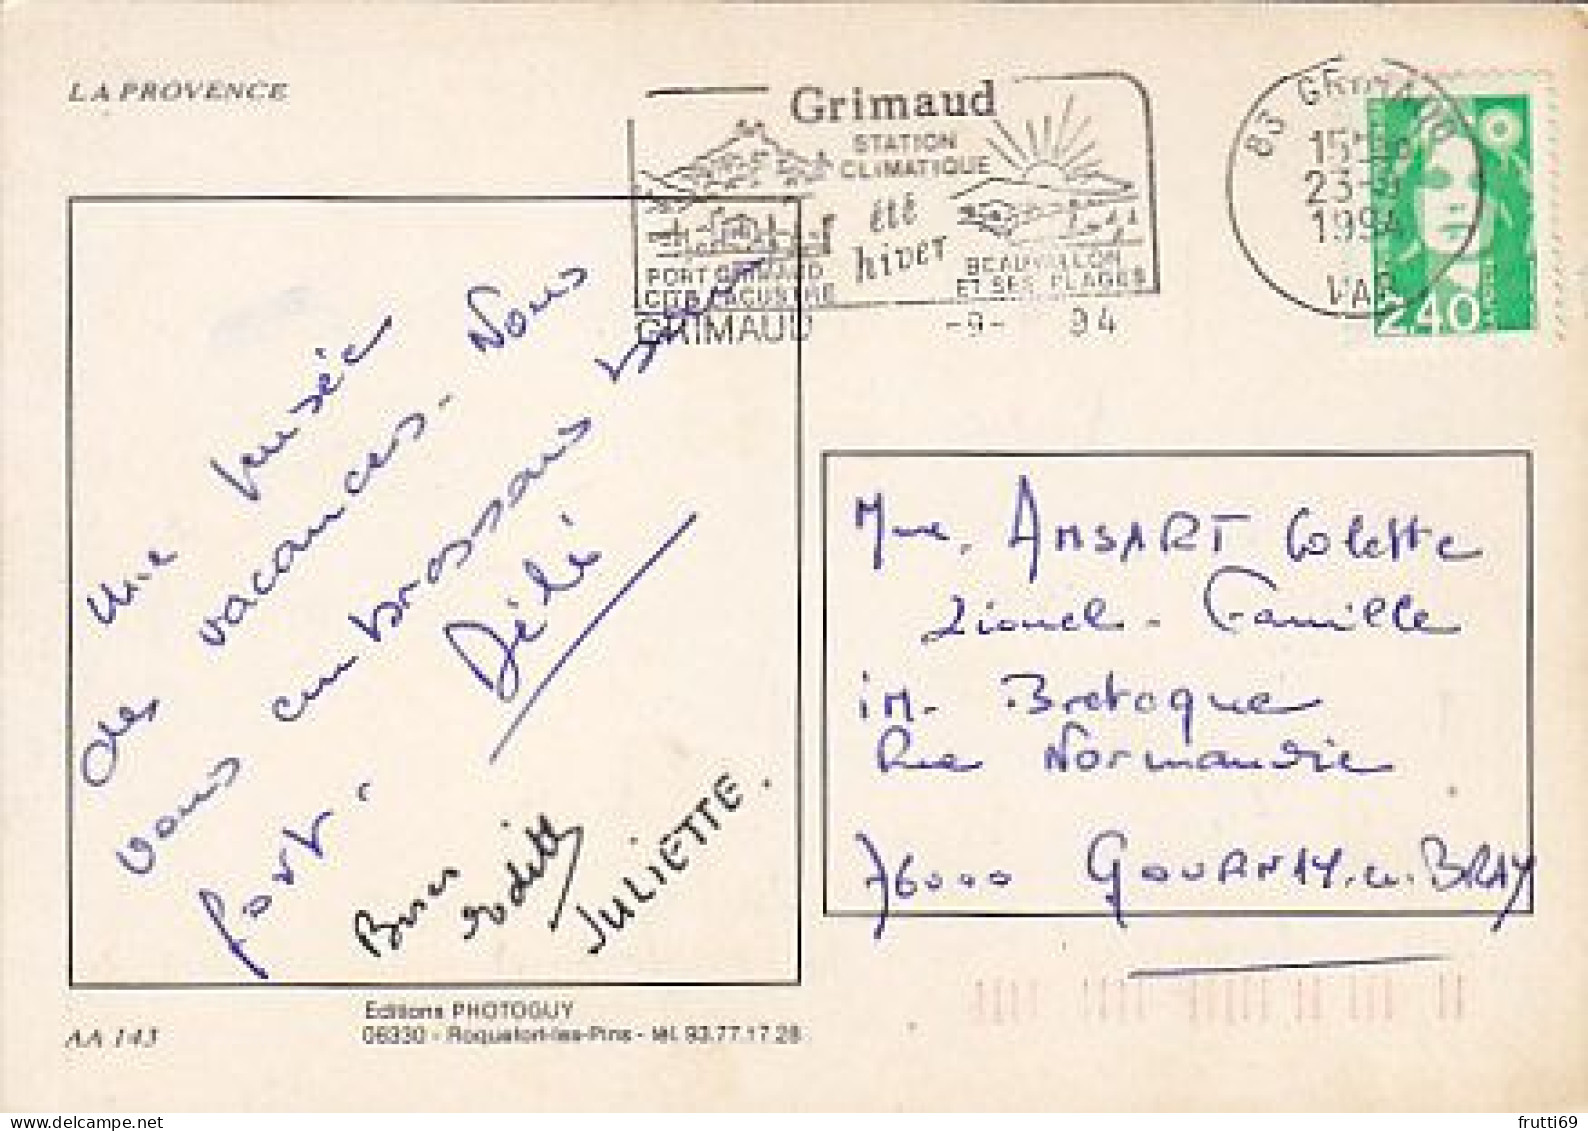 LA PROVENCE
Grimaud
STATION
CLIMATIQUE
été
hiver
PORT GRIMAUD
CITE LACUSTRE
BEAUVALLON
ET SES PLAGES
GRIMAUD
-9- 94
83 GRIMAUD
15H
23-9
1994
VAR
2,40
une pensée
des vacances. Nous
vous embrassons bien
fort.
Dédé
Bises
Odette
JULIETTE.
Mme. ANSART Colette
Lionel - Famille
iM. Bretagne
Rue Normandie
76000 GOURNAY-en-BRAY
AA 143
Editions PHOTOGUY
06330 - Roquefort-les-Pins - tél. 93.77.17.28
frutti69